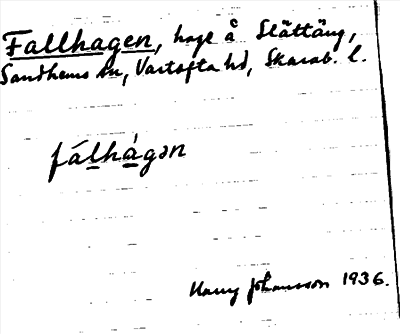 Fallhagen, hage å Slättäng,
Sandhems sn, Vartofta hd, Skarab. l.
fálhágən
Harry Johansson 1936.